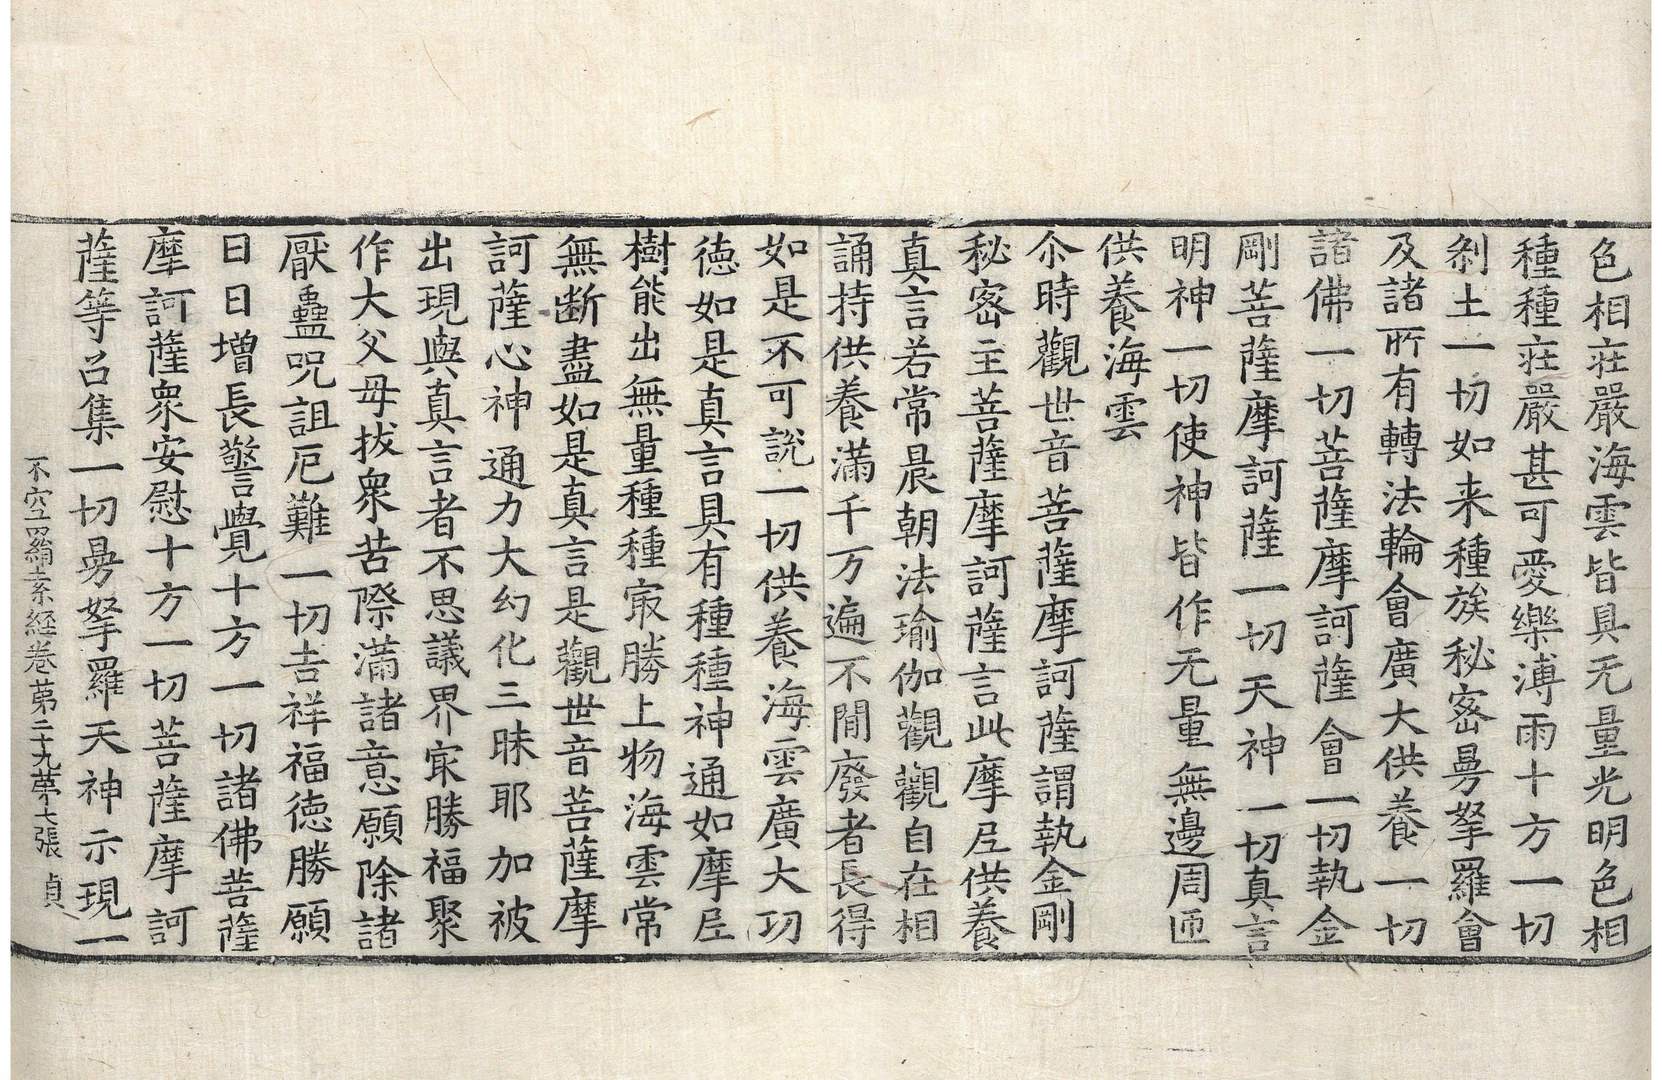 色相莊嚴海雲皆具无量光明色相
種種莊嚴甚可愛樂溥雨十方一切
刹土一切如来種族秘密曼拏羅會
及諸所有轉法輪會廣大供養一切
諸佛一切菩薩摩訶薩會一切執金
剛菩薩摩訶薩一切天神一切真言
明神一切使神皆作无量無邊周匝
供養海雲
尒時觀世音菩薩摩訶薩謂執金剛
秘密主菩薩摩訶薩言此摩尼供養
真言若常晨朝法瑜伽觀觀自在相
誦持供養滿千万遍不間廢者長得
如是不可說一切供養海雲廣大功
德如是真言具有種種神通如摩尼
樹能出無量種種㝡勝上物海雲常
無断盡如是真言是觀世音菩薩摩
訶薩心神通力大幻化三昧耶加被
出現與真言者不思議界㝡勝福聚
作大父母拔衆苦際滿諸意願除諸
厭蠱呪詛厄難一切吉祥福德勝願
日日增長警覺十方一切諸佛菩薩
摩訶薩衆安慰十方一切菩薩摩訶
薩等召集一切曼拏羅天神示現一
不空羂索經卷苐二十九苐七張 貞